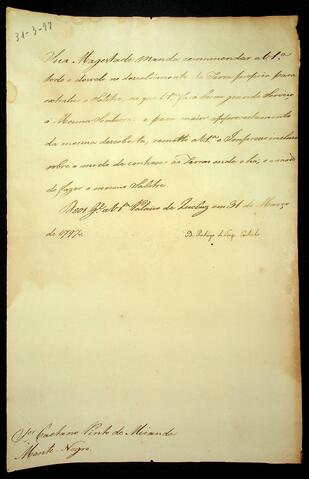 31-3-97
Sua Magestade Manda recommendar a V. S.ª
todo o desvelo no descobrimento da Terra propria para
extrahir o Salitre, no que V. S.ª fará hum grande Serviço
à Mesma Senhora: e para maior aproveitamento
da mesma descoberta, remetto a V. S.ª o Impresso incluso
sobre o modo de conhecer as Terras onde o ha, e o modo
de fazer o mesmo Salitre.
Deos G.e a V. S.ª Palacio de Queluz em 31 de Março
de 1797.
D. Rodrigo de Souza Coutinho
S.or Caetano Pinto de Miranda
Monte-Negro.